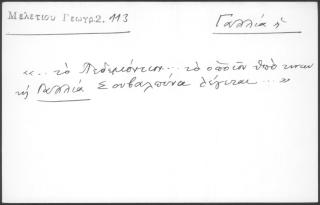 Μελετίου Γεωγρ2. 113
Γαλλία ἡ
«... τὸ Πεδεμόντιον... τὸ ὁποῖον ὑπὸ τινων
τῇ Γαλλία Σουβαλπίνα λέγεται ... »